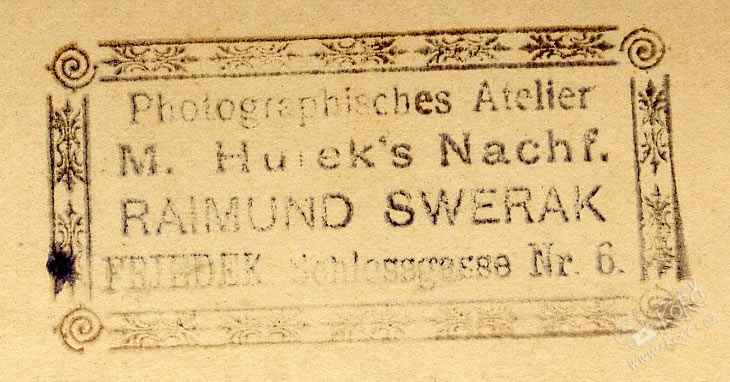 Photographisches Atelier
M. Hutek's Nachf.
RAIMUND SWERAK
FRIEDEK, Schlossgasse Nr. 6.
FOKY